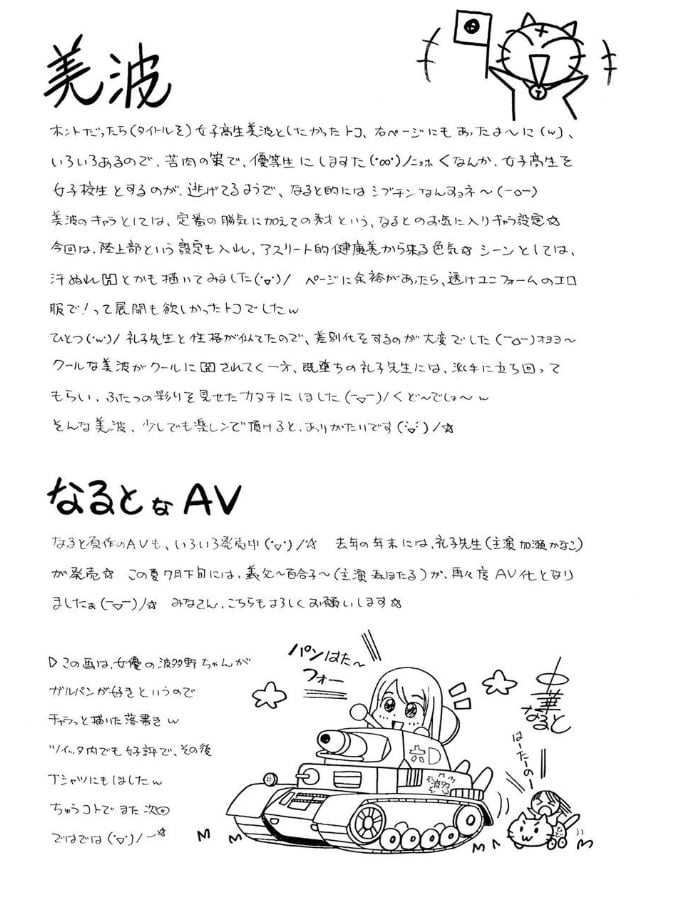 美波
ホントだったら(タイトルを)女子高生美波としたかったトコ、右ページにもあったよ〜に(w)、
いろいろあるので、苦肉の策で、優等生にしますた(°∞°)/ニョホ くなんか、女子高生を
女子校生とするのが、逃げてるようで、なると的にはシブチンなんすョネ〜(￣○￣)
美波のキャラとしては、定番の勝気に加えての秀才という、なるとのお気に入りキャラ設定☆
今回は、陸上部という設定も入れ、アスリート的健康美から来る色気☆ シーンとしては、
汗ぬれ とかも描いてみました(°▽°)/ ページに余裕があったら、透けユニフォームのエロ
服で!って展開も欲しかったトコでしたw
ひとつ(°w°)/ 礼子先生と性格が似てたので、差別化をするのが大変でした(￣○￣)オヨヨ〜
クールな美波がクールに されてく一方、既堕ちの礼子先生には、派手に立ち回って
もらい、ふたつの彩りを見せたカタチにしました(￣▽￣)/くど〜でしょ〜w
そんな美波、少しでも楽しンで頂けると、ありがたいです(°▽°)/☆
なるとなAV
なると原作のAVも、いろいろ発売中(°▽°)/☆ 去年の年末には、礼子先生(主演 加瀬かなこ)
が発売☆ この夏7月下旬には、義父〜百合子〜(主演 森ほたる)が、再々度AV化となり
ましたぁ(￣▽￣)/☆ みなさん、こちらもよろしくお願いします☆
▷この画は、女優の波多野ちゃんが
ガルパンが好きというので
チャラっと描いた落書きw
ツイッタ内でも好評で、その後
Tシャツにもしましたw
ちゅうコトでまた次回
ではでは(°▽°)/〜☆
パンはた〜
フォー
六D
波多
中華
なると
は〜た〜の〜